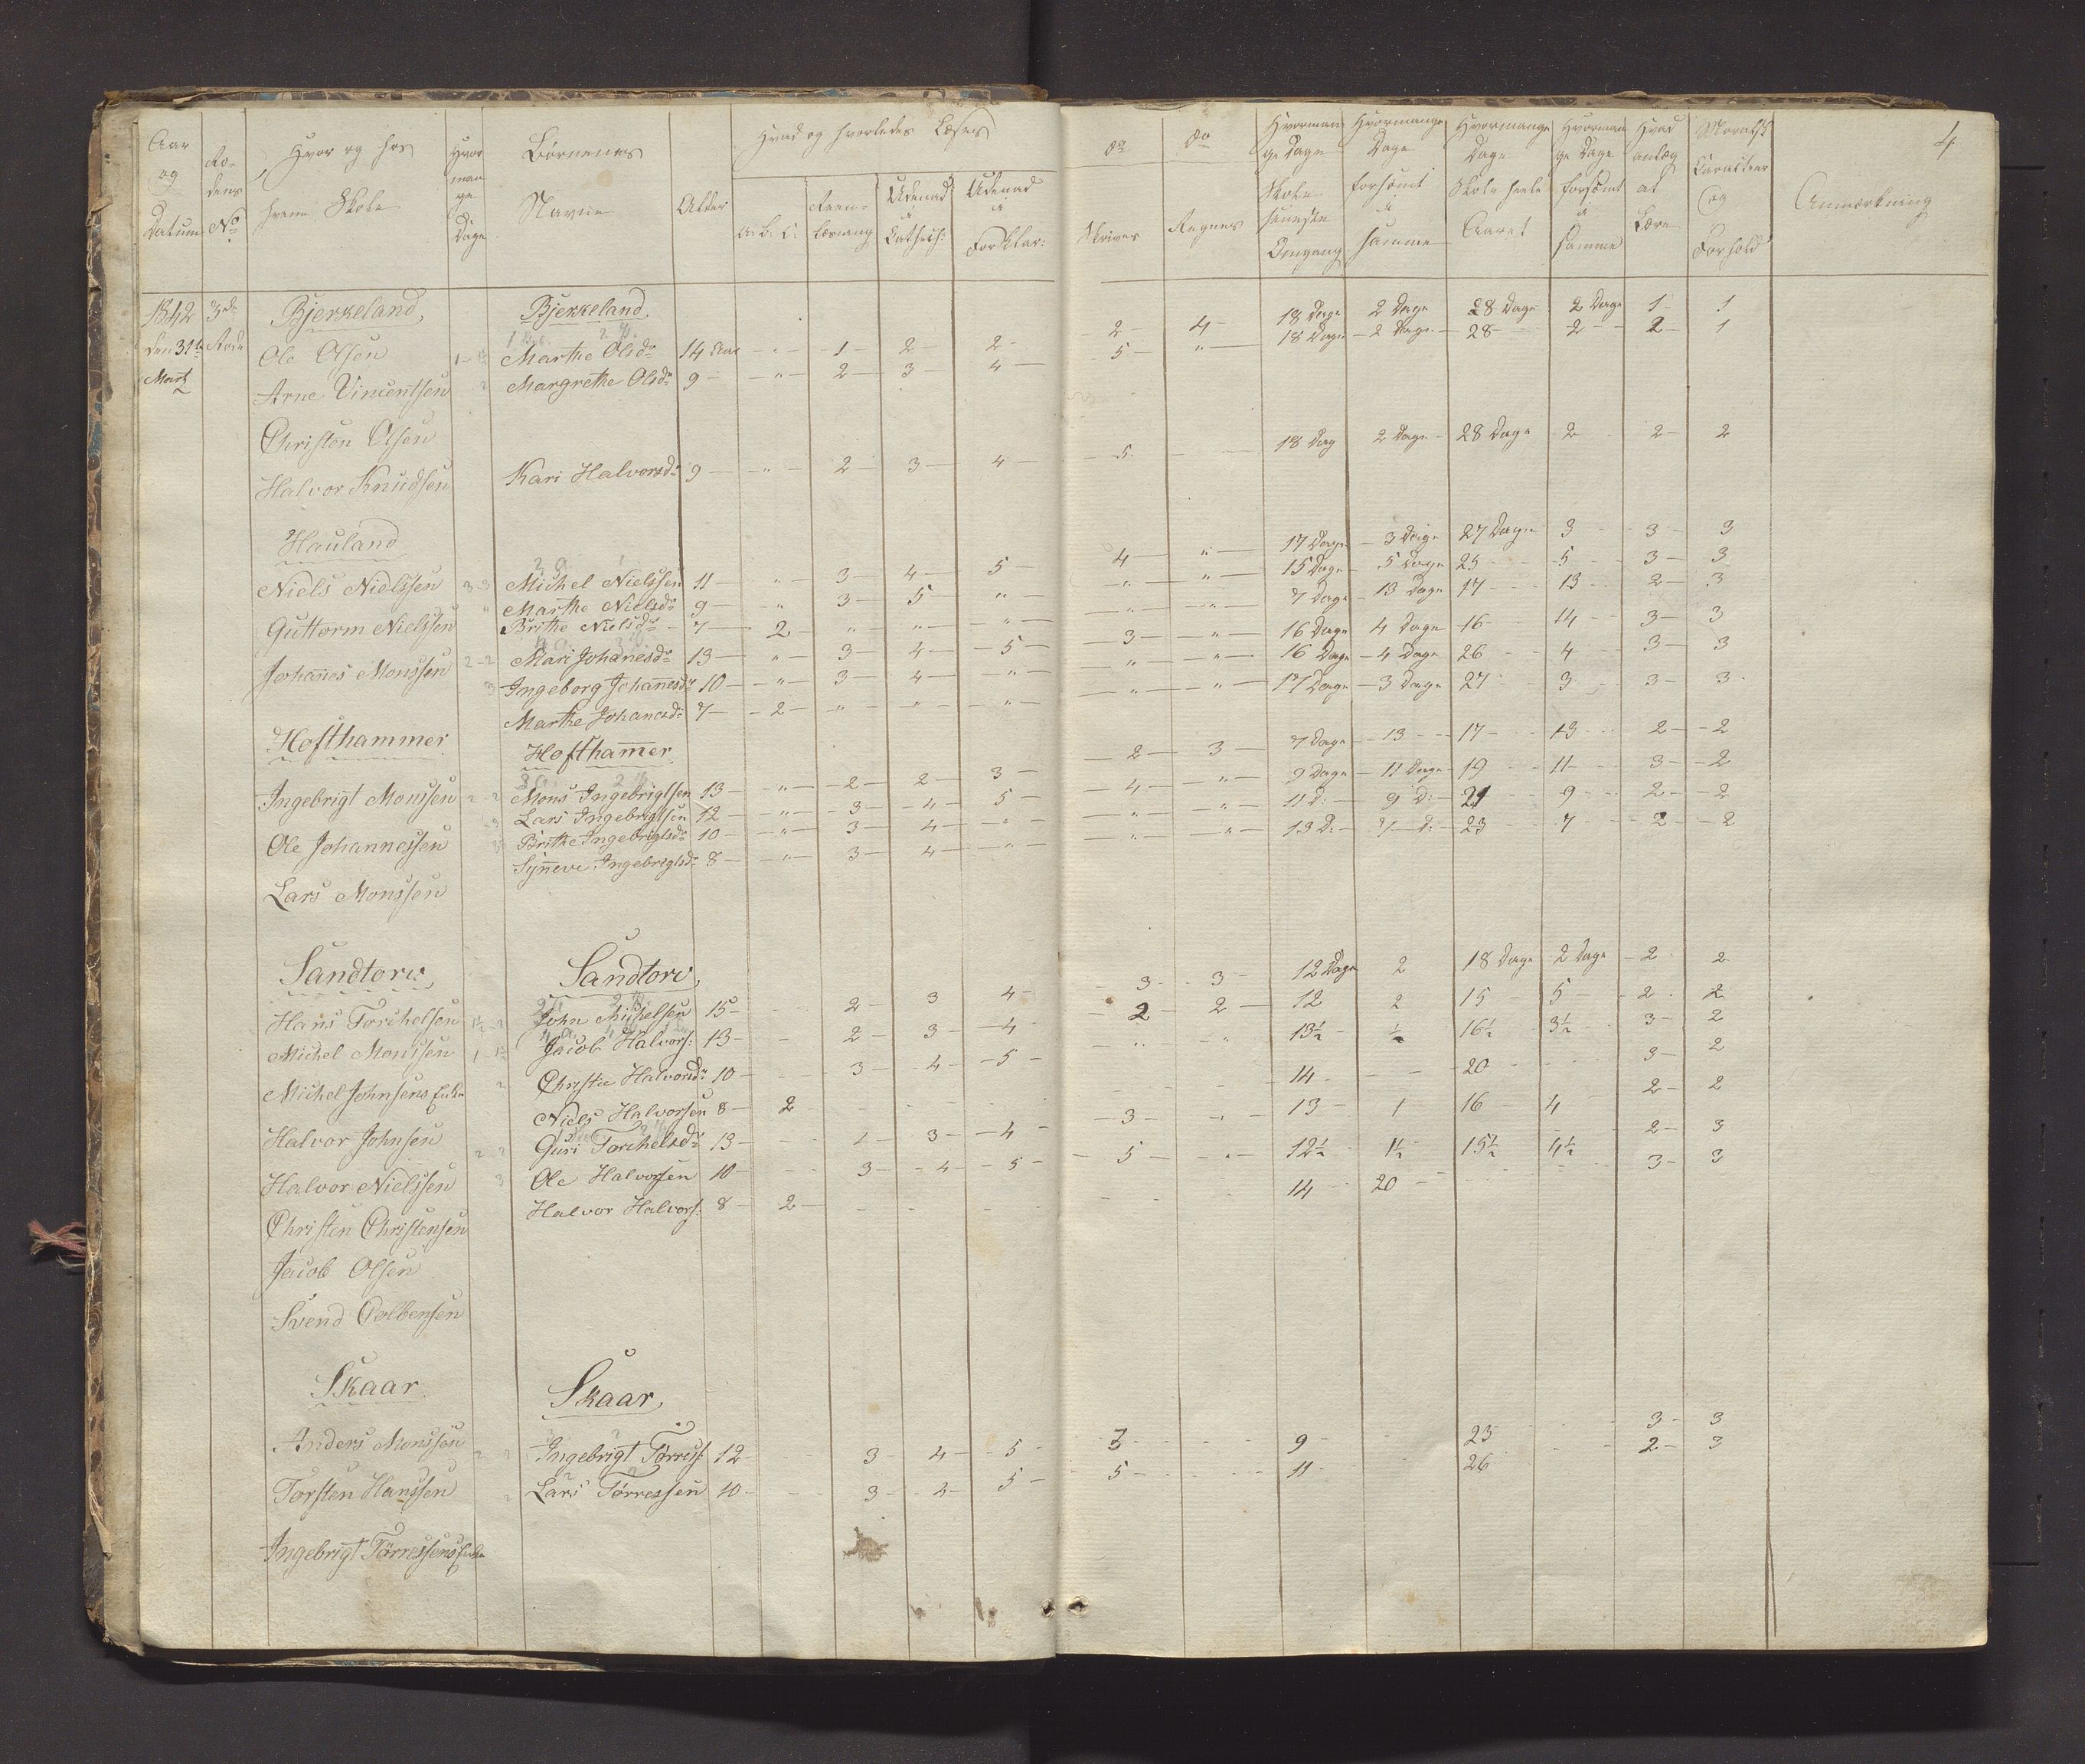 4.
Aar og Datum
Rodens No
Hvor og hos hvem Skole
Hvor mange Dage
Børnenes Navne
Alder
Hvad og hvorledes Læses
A. B. C.
Reenlæsning
Udenad i Cathech:
Udenad i Forklar:
do Skriver
do Regner
Hvormange Dage Skole seneste Omgang
Hvormange Dage forsømt i samme
Hvormange Dage Skole heele Aaret
Hvormange Dage forsømt i samme
Hvad anlæg at Lære
Moralsk Caracteer og Forhold
Anmærkning
1842 3de Bjerkeland, Bjerkeland,
den 31te Rode Ole Olsen 1 - 1½ Marthe Olsdr 14 Aar - " - 1 - 2 - 2 - 2 - 4 - 18 Dage 2 Dage 28 Dage 2 Dage 1 - 1
Martz Arne Vincentsen 2 Margrethe Olsdr 9 - " - 2 - 3 - 4 - 5 - " - 18 Dage - 2 Dage - 28 - 2 - 2 - 1
Christen Olsen
Halvor Knudsen Kari Halvorsdr 9 - " - 2 - 3 - 4 - 5 - 18 Dag 2 Dage - 28 Dage - 2 2 - 2
Hauland
Niels Nielssen 3 - 3 Michel Nielssen 11 - " - 3 - 4 - 5 - 4 - " - 17 Dage - 3 Dage 27 Dage 3 - 3 - 3
Guttorm Nielssen Marthe Nielsdr 9 - " - 3 - 5 - " - " - " - 15 Dage - 5 Dage 25 - 5 - 3 - 3
Brithe Nielsdr - 7 - 2 - " - " - " - " - " - 7 Dage - 13 Dage 17 - 13 - 2 - 3
Johannes Monssen 2 - 2 Mari Johanesdr 13 - " - 3 - 4 - 5 - 3 - " - 16 Dage 4 Dage - 16 - 14 - 3 - 3
3 Ingeborg Johannesdr 10 - " - 3 - 4 - " - " - " - 16 Dage - 4 Dage 26 - 4 - 3 - 3
Marthe Johanesdr 7 - 2 - " - " - " - " - " - 17 Dage - 3 Dage 27 - 3 - 3 - 3
Hofthammer Hofthammer
Ingebrigt Monssen 2 - 2 Mons Ingebrigtsen 13 - " - 2 - 2 - 3 - 2 - 3 - 7 Dage - 13 - 17 - 13 - 2 - 2
Lars Ingebrigtsen 12 - " - 3 - 4 - 5 4 - " - 9 Dage - 11 Dage 19 - 11 - 3 - 2
Ole Johannessen Brithe Ingebrigtsdr 10 - " - 3 - 4 - " - " - " - 11 D: - 9 D: - 21 - 9 - 2 - 2
Synneve Ingebrigtsdr 8 - " - 3 - 4 - " - " - " - 13 D: - 7 D: - 23 - 7 - 2 - 2
Lars Monssen
Sandtorv, Sandtorv,
Hans Torchelsen John Michelsen 15 - 2 - 3 4 - 3 - 3 - 12 Dage 2 18 Dage 2 Dage - 2 2
Michel Monssen 1 - 1½ Jacob Halvors: 13 - 2 - 3 - 4 - 2 - 2 - 12 2 15 - 5 - 2 2
Michel Johnsens Enke 2 Christie Halvorsdr 10 - 3 - 4 - 5 - 13½ - ½ 16½ 3½ 3 - 2
Niels Halvorsen 8 - 2 - 14 - 20 - 3 - 2
Halvor Johnsen 2 - 2 Guri Torchelsdr 13 - 2 - 3 - 4 - 3 - 13 - 1 16 - 4 2 - 2
Halvor Nielssen 3 Ole Halvorsen 10 - 3 - 4 - 5 - 5 - 12½ - 1½ - 15½ 4½ 2 - 3
Halvor Halvors: 8 - 2 - 14 - 20 - 3 - 3
Christen Christensen
Jacob Olsen
Svend Colbensen
Skaar Skaar,
Anders Monssen 2 Ingebrigt Tørress: 12 - 3 - 4 - 5 - 3 - 9 - 23 - 3 - 3
Torsten Hanssen 2 Lars Tørressen 10 - 3 - 2 - 5 - 5 - 11 - 26 2 - 3
Ingebrigt Tørressens Enke